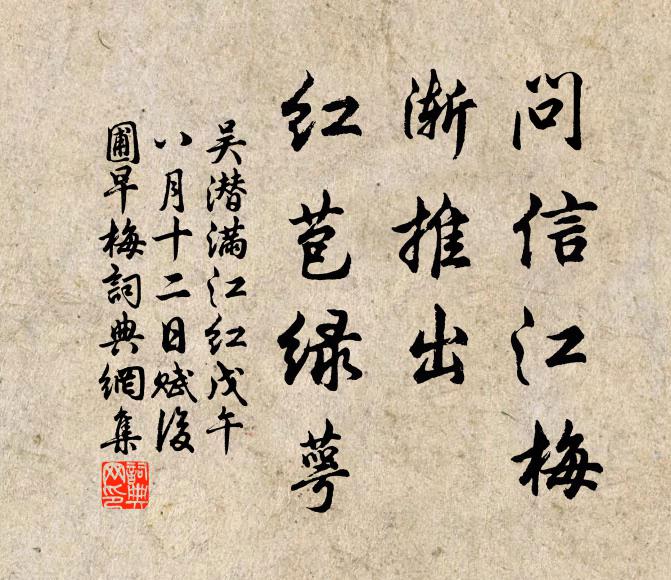 问信江梅
渐推出
红苞绿萼
吴潜满江红戊午
八月十二日赋后
圃早梅詞典網集
詞典网印